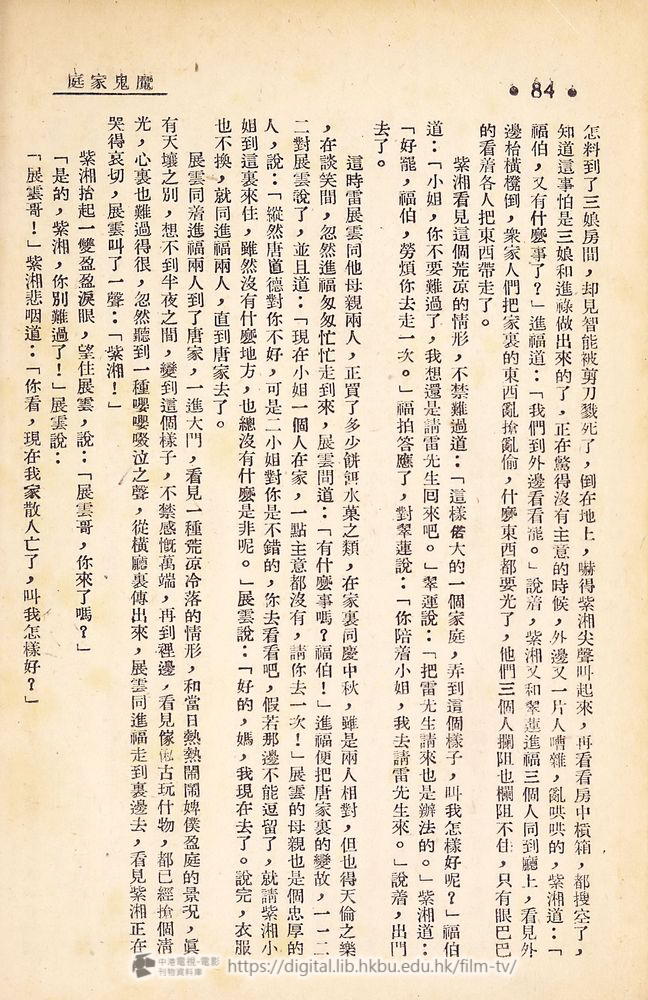 魔鬼家庭
• 84 •
怎料到了三娘房間，却見智能被剪刀戮死了，倒在地上，嚇得紫湘尖聲叫起來，再看看房中槓箱，都搜空了，
知道這事怕是三娘和進祿做出來的了，正在驚得沒有主意的時候，外邊又一片人嘈雜，亂哄哄的，紫湘道：「
福伯，又有什麼事了？」進福道：「我們到外邊看看罷。」說着，紫湘又和翠蓮進福三個人同到廳上，看見外
邊枱橫櫈倒，衆家人們把家裏的東西亂搶亂偷，什麼東西都要光了，他們三個人攔阻也欄阻不住，只有眼巴巴
的看着各人把東西帶走了。
紫湘看見這個荒凉的情形，不禁難過道：「這樣偌大的一個家庭，弄到這個樣子，叫我怎樣好呢？」福伯
道：「小姐，你不要難過了，我想還是請雷先生回來吧。」翠蓮說：「把雷先生請來也是辦法的。」紫湘道：
「好罷，福伯，勞煩你去走一次。」福拍答應了，對翠蓮說：「你陪着小姐，我去請雷先生來。」說着，出門
去了。
這時雷展雲同他母親兩人，正買了多少餅餌水菓之類，在家裏同慶中秋，雖是兩人相對，但也得天倫之樂
，在談笑間，忽然進福匆匆忙忙走到來，展雲問道：「有什麼事嗎？福伯！」進福便把唐家裏的變故，一一二
二對展雲說了，並且道：「現在小姐一個人在家，一點主意都沒有，請你去一次！」展雲的母親也是個忠厚的
人，說：「縱然唐道德對你不好，可是二小姐對你是不錯的，你去看看吧，假若那邊不能逗留了，就請紫湘小
姐到這裏來住，雖然沒有什麼地方，也總沒有什麼是非呢。」展雲說：「好的，媽，我現在去了。說完，衣服
也不換，就同進福兩人，直到唐家去了。
展雲同着進福兩人到了唐家，一進大門，看見一種荒凉冷落的情形，和當日熱熱鬧鬧婢僕盈庭的景况，眞
有天壤之別，想不到半夜之間，變到這個樣子，不禁感慨萬端，再到裡邊，看見傢俬古玩什物，都已經搶個清
光，心裏也難過得很，忽然聽到一種嚶嚶啜泣之聲，從橫廳裏傳出來，展雲同進福走到裏邊去，看見紫湘正在
哭得哀切，展雲叫了一聲：「紫湘！」
紫湘抬起一雙盈盈淚眼，望住展雲，說：「展雲哥，你來了嗎？」
「是的，紫湘，你別難過了！」展雲說：
「展雲哥！」紫湘悲咽道：「你看，現在我家散人亡了，叫我怎樣好？」
中港電視·電影
刊物資料庫
https://digital.lib.hkbu.edu.hk/film-tv/